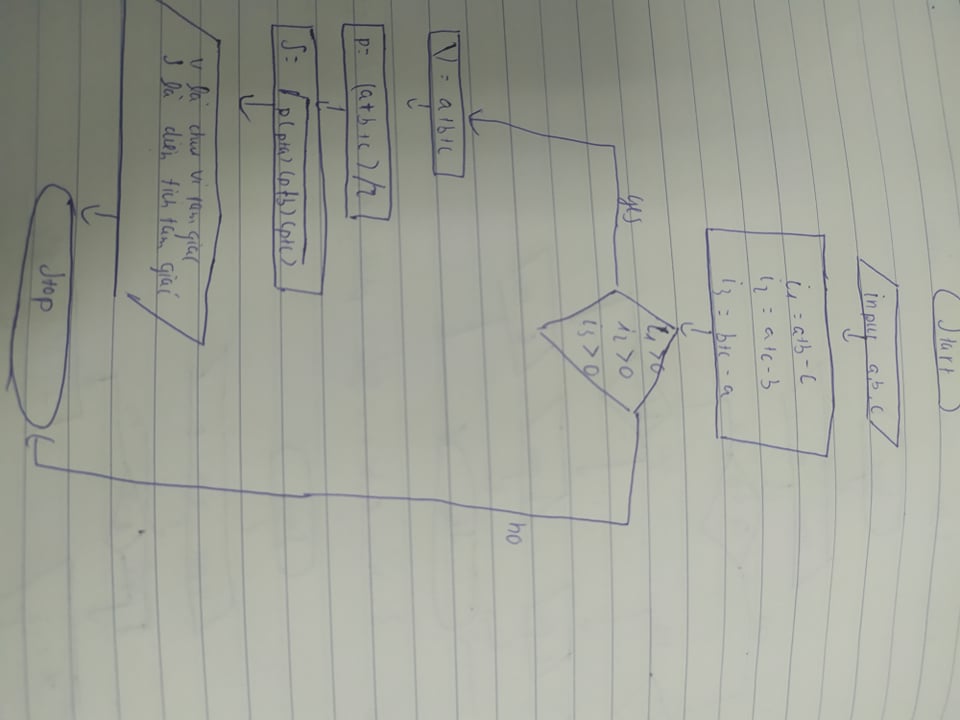 Start
input a, b, c
i1 = a+b-c
i2 = a+c-b
i3 = b+c-a
i1 > 0
i2 > 0
i3 > 0
yes
no
V = a+b+c
P = (a+b+c)/2
S = √p(p+a)(p+b)(p+c)
V là chu vi tam giác
S là diện tích tam giác
Stop